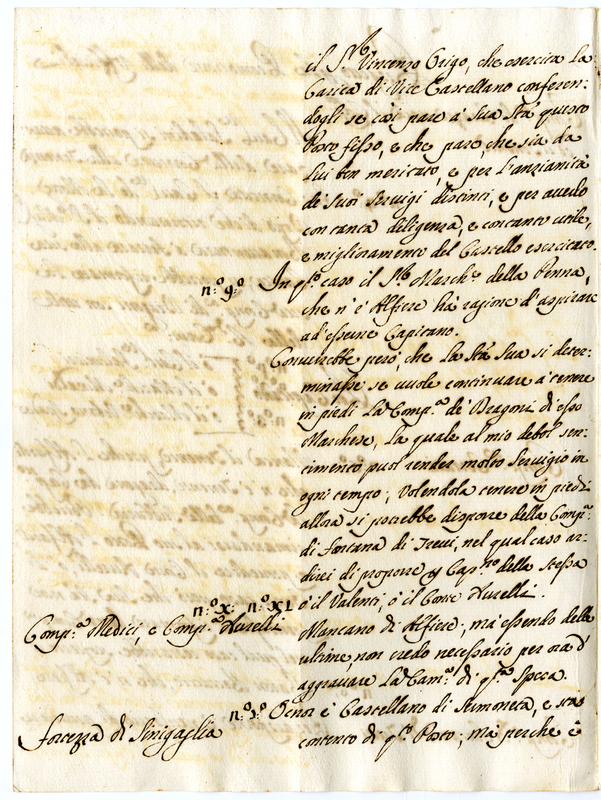 il S.r Vincenzo Origo, che esercita la
Carica di Vice Castellano conferen-
dogli se così pare a Sua Stà questo
Posto fisso, e che pare, che sia da
lui ben meritato, e per l'anzianità
de' suoi servigi distinti, e per averlo
con tanta diligenza, e con tanto utile,
e miglioramento del Castello esercitato.
n.º 9.º In q.to caso il S.r March.e della Penna,
che n'è Alfiere hà ragione d'aspirare
ad esserne Capitano.
Converrebbe però, che la Stà Sua si deter-
minasse se vuole continuare à tenere
in piedi la Comp.a de' Dragoni di esso
Marchese, la quale al mio debol sen-
timento puol render molto servigio in
ogni tempo; Volendola tenere in piedi
allora si potrebbe disporre della Comp.a
di Fontana di Trevi, nel qual caso ar-
direi di proporre p Cap.no della stessa
ò il Valenti, ò il Conte Aurelli.
n.º X: n.º XI
Comp.a Medici, e Comp.a Aurelli
Mancano di Alfiere; mà essendo delle
ultime non credo necessario per ora d'
aggravare la Cam.a di q.ta spesa.
n.º 1.º Ornor è Castellano di Sermoneta, e stà
Fortezza di Sinigaglia
contento di q.to Posto; mà perche è